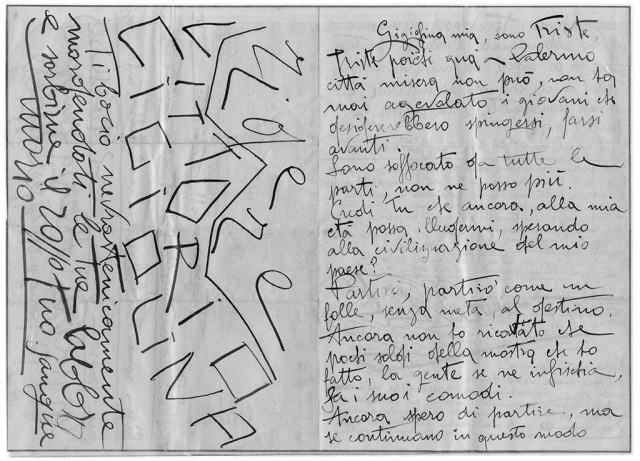 Gigiolina mia, sono Triste,
Triste perché quà ~ Palermo
città, misera non più, non ha
mai agevolato i giovani che
desidererebbero spingersi, farsi
avanti.
Sono soffocato da tutte le
parti, non ne posso più.
Credi tu che ancora, alla mia
età possa illudermi, sperando
alla civilizzazione del mio
paese?
Partirei, partirò come un
folle, senza meta, al destino.
Ancora non ho ricavato che
pochi soldi della mostra che ho
fatto, la gente se ne infischia,
fa i suoi comodi.
Ancora spero di partire, ma
se continuano in questo modo
VITTORIO
GIGIOLINA
Ti bacio nevrastenicamente
mordendoti le tue labbra
e sorbirne il tuo sangue